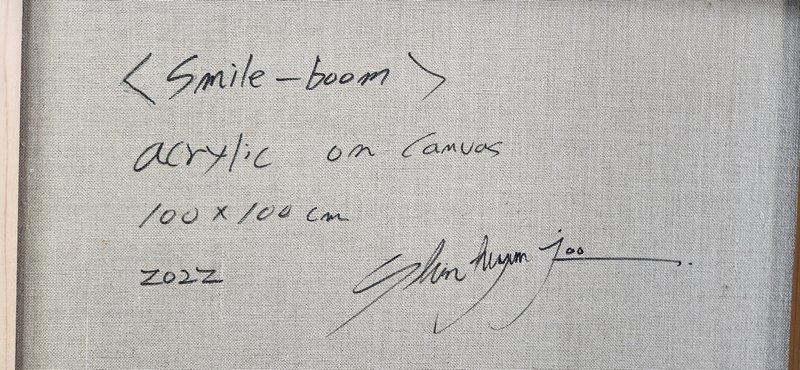 <Smile-boom>
acrylic on Canvas
100 x 100 cm
2022
Shin hyun joo